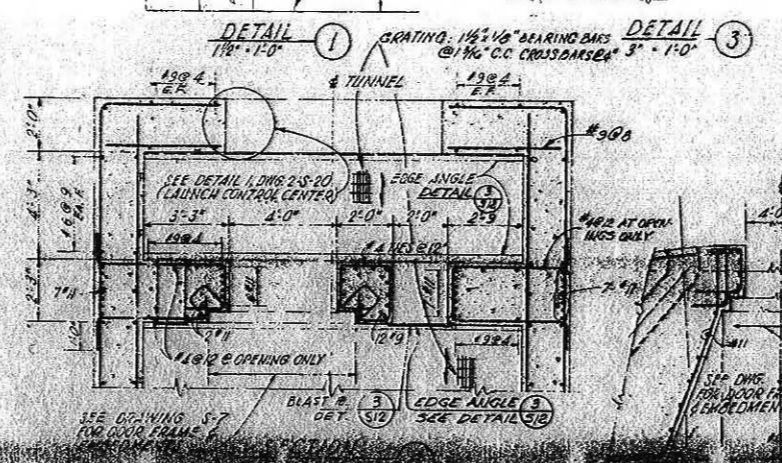 DETAIL 1
1½" = 1'-0"
GRATING: 1½" x 1/8" BEARING BARS
@ 1 3/16" C.C. CROSS BARS @ 4"
DETAIL 3
3" = 1'-0"
#9@4
E.F.
℄ TUNNEL
#9@4
E.F.
#9@8
2'-0"
SEE DETAIL 1, DWG. 2-S-20
(LAUNCH CONTROL CENTER)
EDGE ANGLE
DETAIL 3
S12
4'-3"
#6@9
EA. F.
3'-3"
4'-0"
2'-0"
2'-0"
2'-9"
#9@4
#4 TIES @ 12"
#4@12 AT OPEN-
INGS ONLY
2'-3"
7-#11
7-#11
1'-0"
2-#11
12-#9
#9@4
#11
#4@12 @ OPENING ONLY
BLAST
DET
3
S12
EDGE ANGLE
SEE DETAIL
3
S12
SEE DRAWING S-7
FOR DOOR FRAME &
SEE DWG.
FOR DOOR FR
& EMBEDMEN
4'-0
SECTION